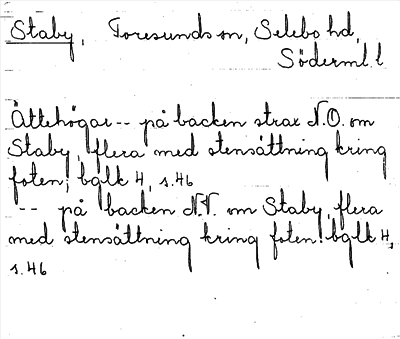 Staby, Toresunds sn, Selebo hd,
Söderml. l
Ättehögar -- på backen strax N.O. om
Staby, flera med stensättning kring
foten; bglk 4, s. 46
-- på backen N.V. om Staby, flera
med stensättning kring foten. bglk 4,
s. 46